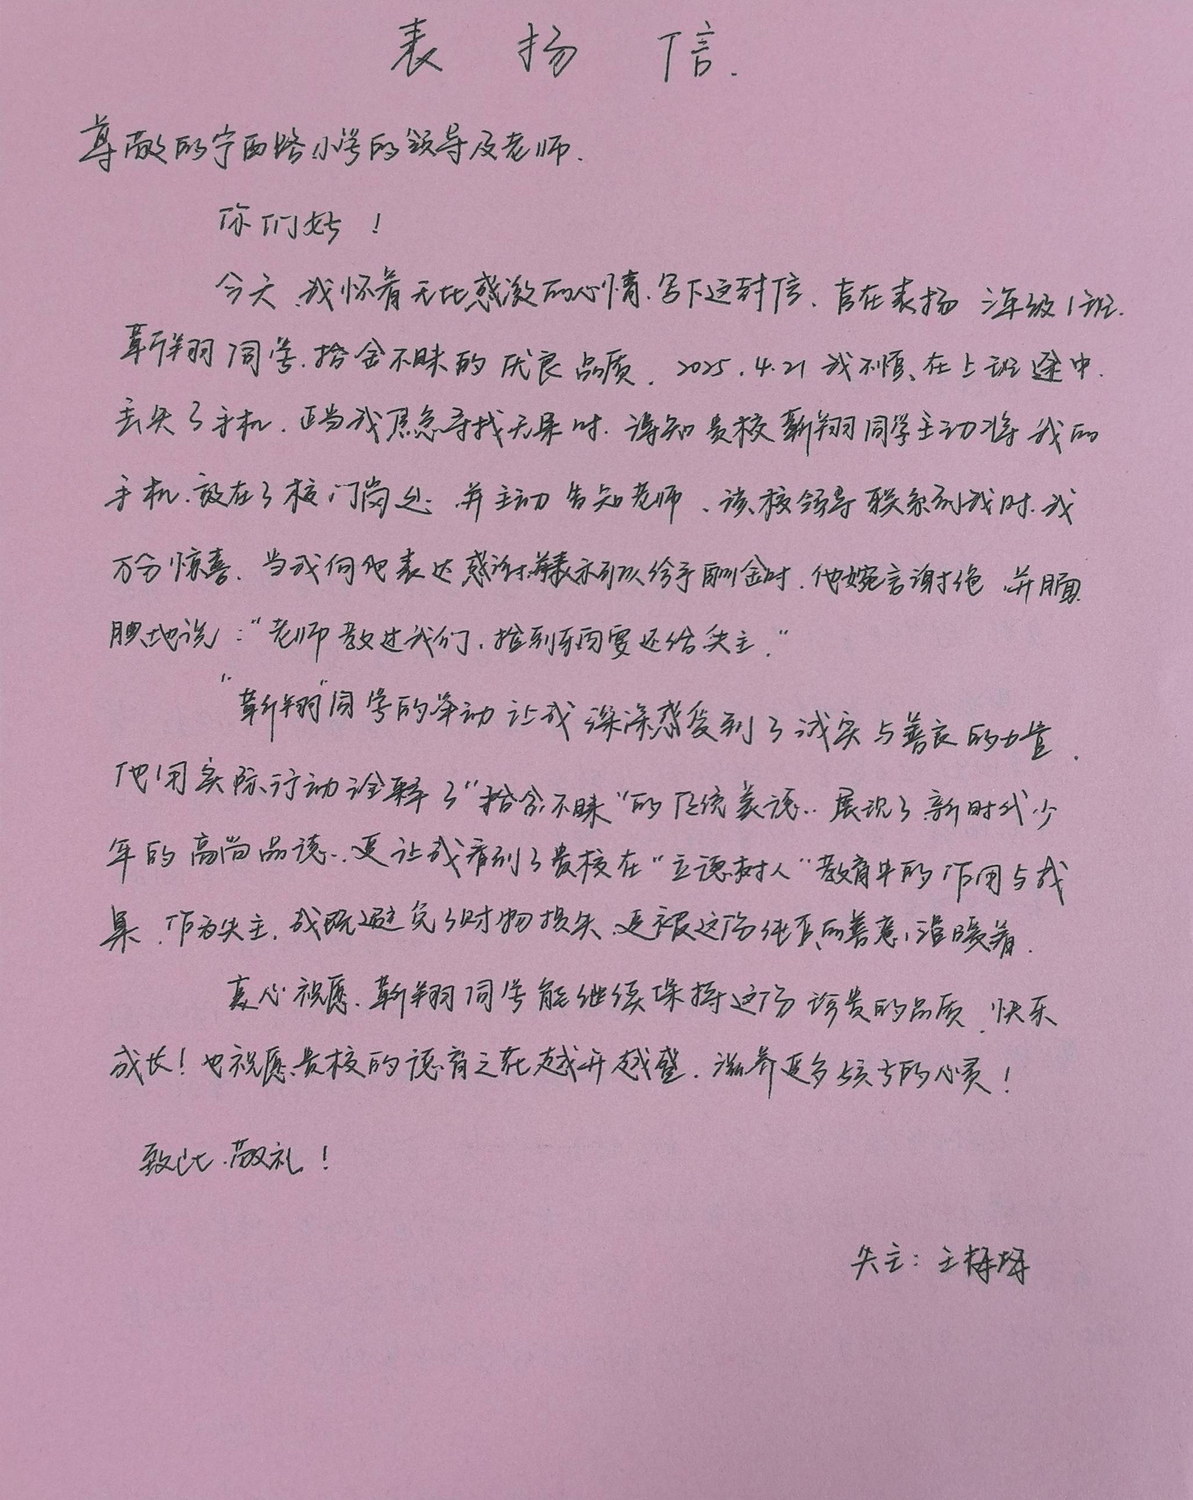 表扬信.
尊敬的宁西路小学的领导及老师.
你们好！
今天,我怀着无比感激的心情.写下这封信.旨在表扬 三年级1班.
靳翔羽同学.拾金不昧的优良品质. 2025.4.21 我不慎、在上班途中.
丢失了手机.正当我焦急寻找无果时.得知贵校靳翔羽同学主动将我的
手机.放在了校门岗处 并主动告知老师、该校领导联系到我时.我
万分惊喜.当我向他表达感谢并表示可以给予酬金时.他婉言谢绝,并腼
腆地说:"老师教过我们,捡到东西要还给失主."
"靳翔羽"同学的举动让我深深感受到了诚实与善良的力量.
他用实际行动诠释了"拾金不昧"的传统美德..展现了新时代少
年的高尚品德..更让我看到了贵校在"立德树人"教育中的作用与成
果.作为失主.我既避免了财物损失.更被这份纯真的善意,温暖着.
衷心祝愿.靳翔羽同学能继续保持这份珍贵的品质,快乐
成长！也祝愿贵校的德育之花越开越盛.滋养更多孩子的心灵！
致此.敬礼！
失主：王